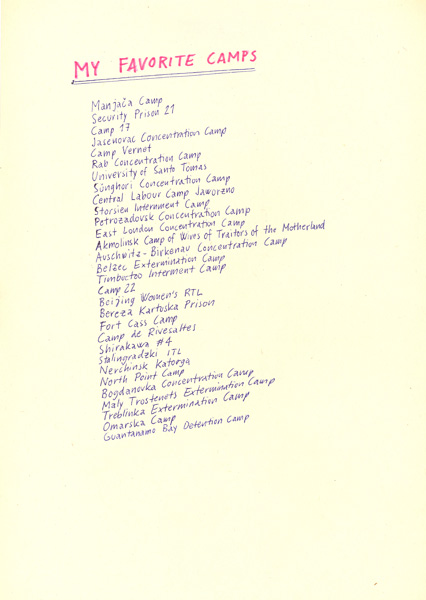 MY FAVORITE CAMPS
Manjača Camp
Security Prison 21
Camp 17
Jasenovac Concentration Camp
Camp Vernet
Rab Concentration Camp
University of Santo Tomas
Sŭnghori Concentration Camp
Central Labour Camp Jaworzno
Storsien Internment Camp
Petrozavodsk Concentration Camp
East London Concentration Camp
Akmolinsk Camp of Wives of Traitors of the Motherland
Auschwitz-Birkenau Concentration Camp
Belzec Extermination Camp
Timbuctoo Interment Camp
Camp 22
Beijing Women's RTL
Bereza Kartuska Prison
Fort Cass Camp
Camp de Rivesaltes
Shirakawa #4
Stalingradzki ITL
Nerchinsk Katorga
North Point Camp
Bogdanovka Concentration Camp
Maly Trostenets Extermination Camp
Treblinka Extermination Camp
Omarska Camp
Guantanamo Bay Detention Camp